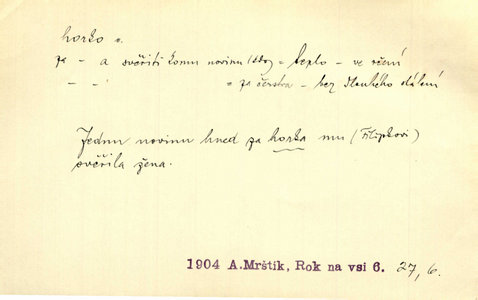 horko n.
za - a svěřiti komu novinu (ddo) = teplo - ve rčení
- - = za čerstva - bez dlouhého otálení
Jednu novinu hned za horka mu (Filipkovi)
svěřila žena.
1904 A.Mrštík, Rok na vsi 6. 27,6.